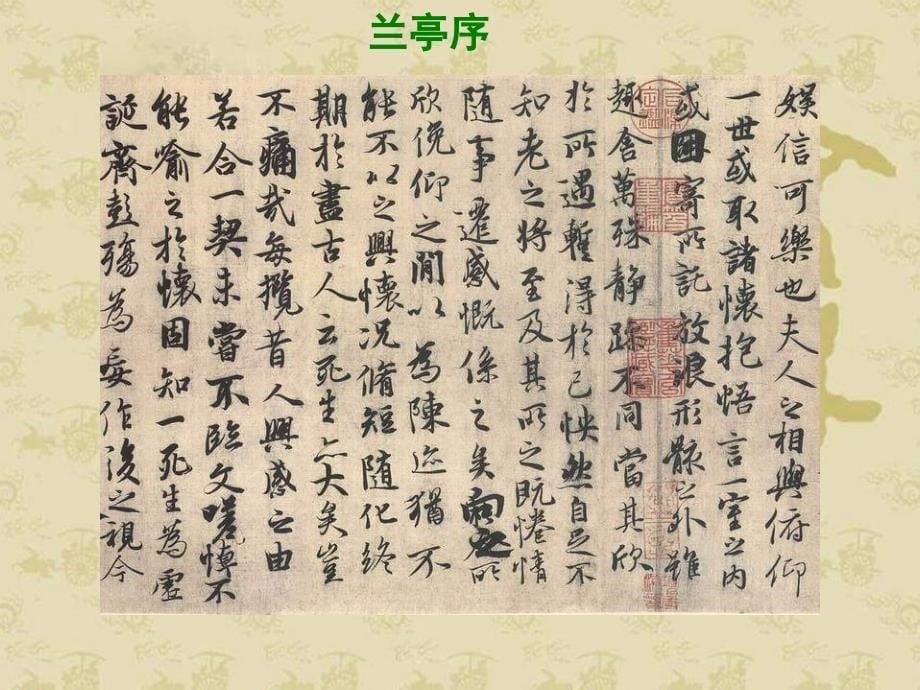 兰亭序
娱信可樂也夫人之相與俯仰
一世或取諸懷抱悟言一室之内
或因寄所託放浪形骸之外雖
趣舍萬殊静躁不同當其欣
於所遇暫得於己怏然自足不
知老之將至及其所之既惓情
随事遷感慨係之矣向之所
欣俛仰之閒以為陳迹猶不
能不以之興懷況脩短随化終
期於盡古人云死生亦大矣豈
不痛哉每攬昔人興感之由
若合一契未嘗不臨文嗟悼不
能喻之於懷固知一死生為虚
誕齊彭殤為妄作後之視今